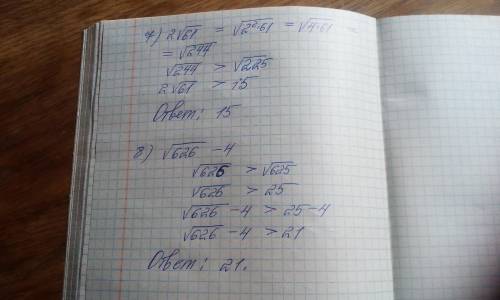 7) 2√61 = √2²·61 = √4·61 =
= √244
√244 > √225
2√61 > 15
Ответ: 15
8) √626 - 4
√626 > √625
√626 > 25
√626 - 4 > 25 - 4
√626 - 4 > 21
Ответ: 21.